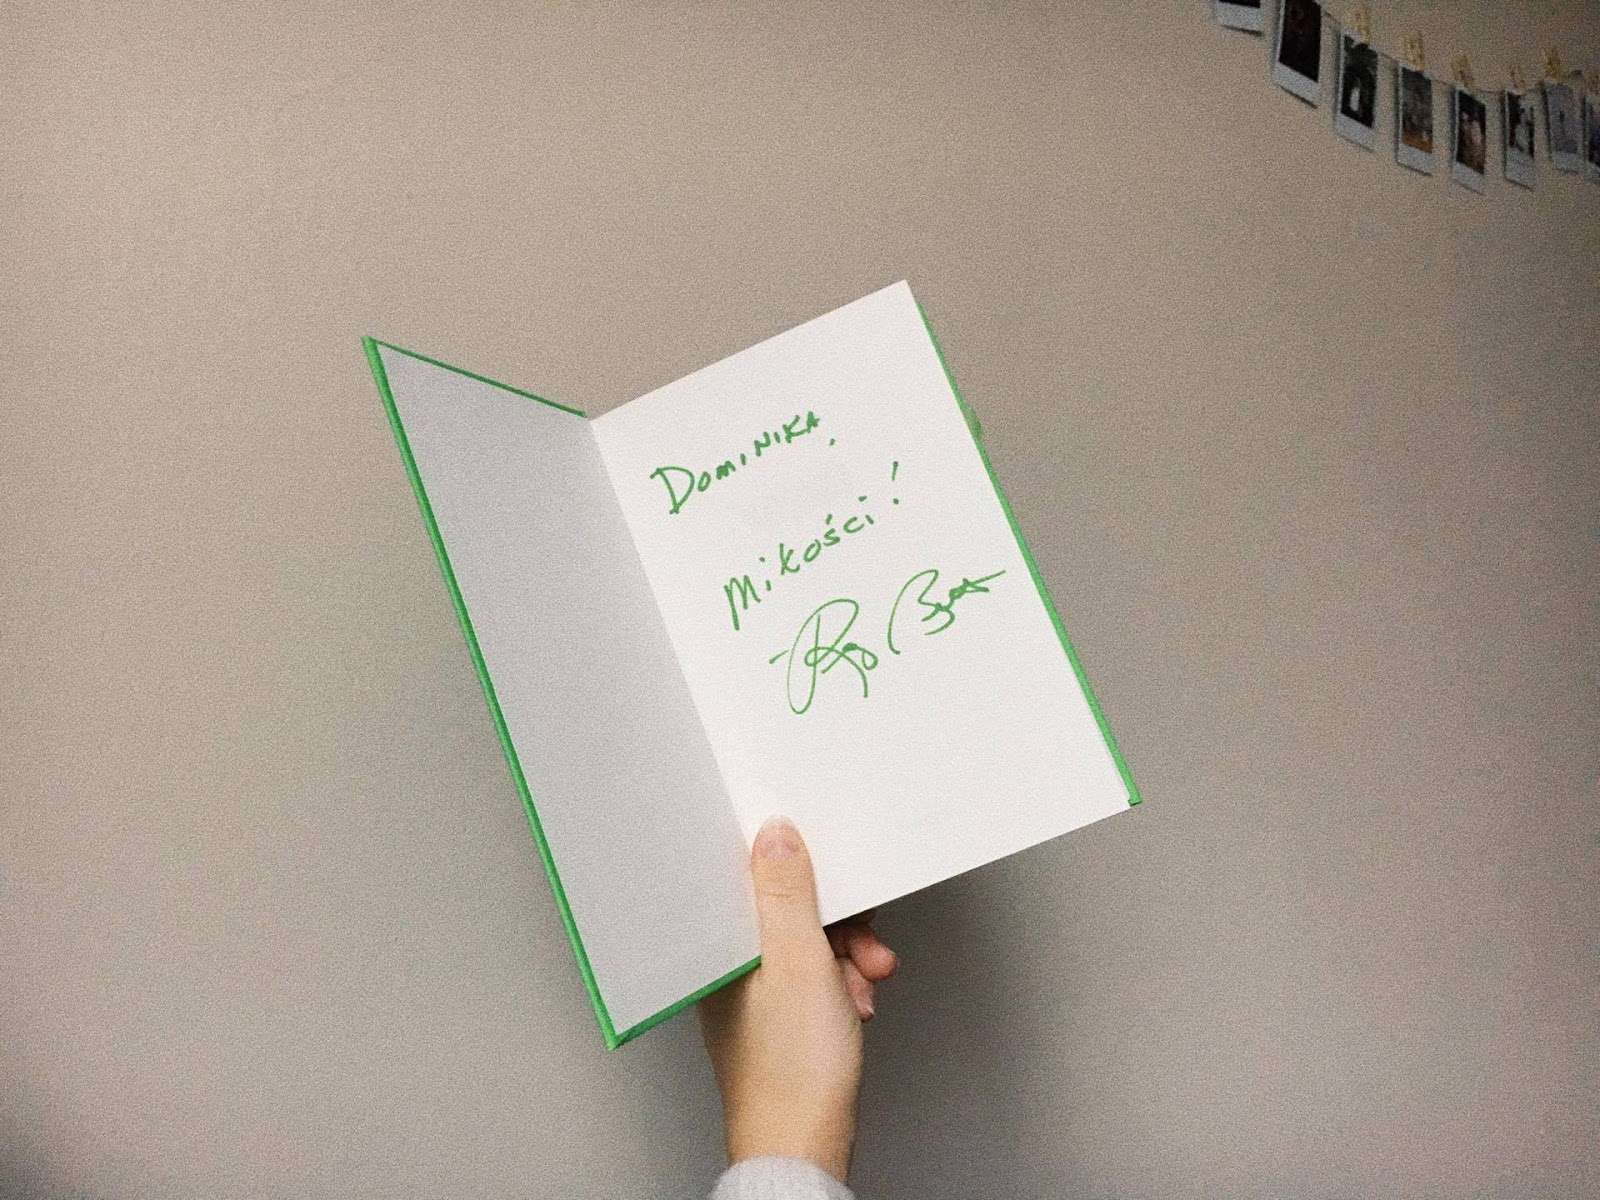 Dominika,
Miłości!